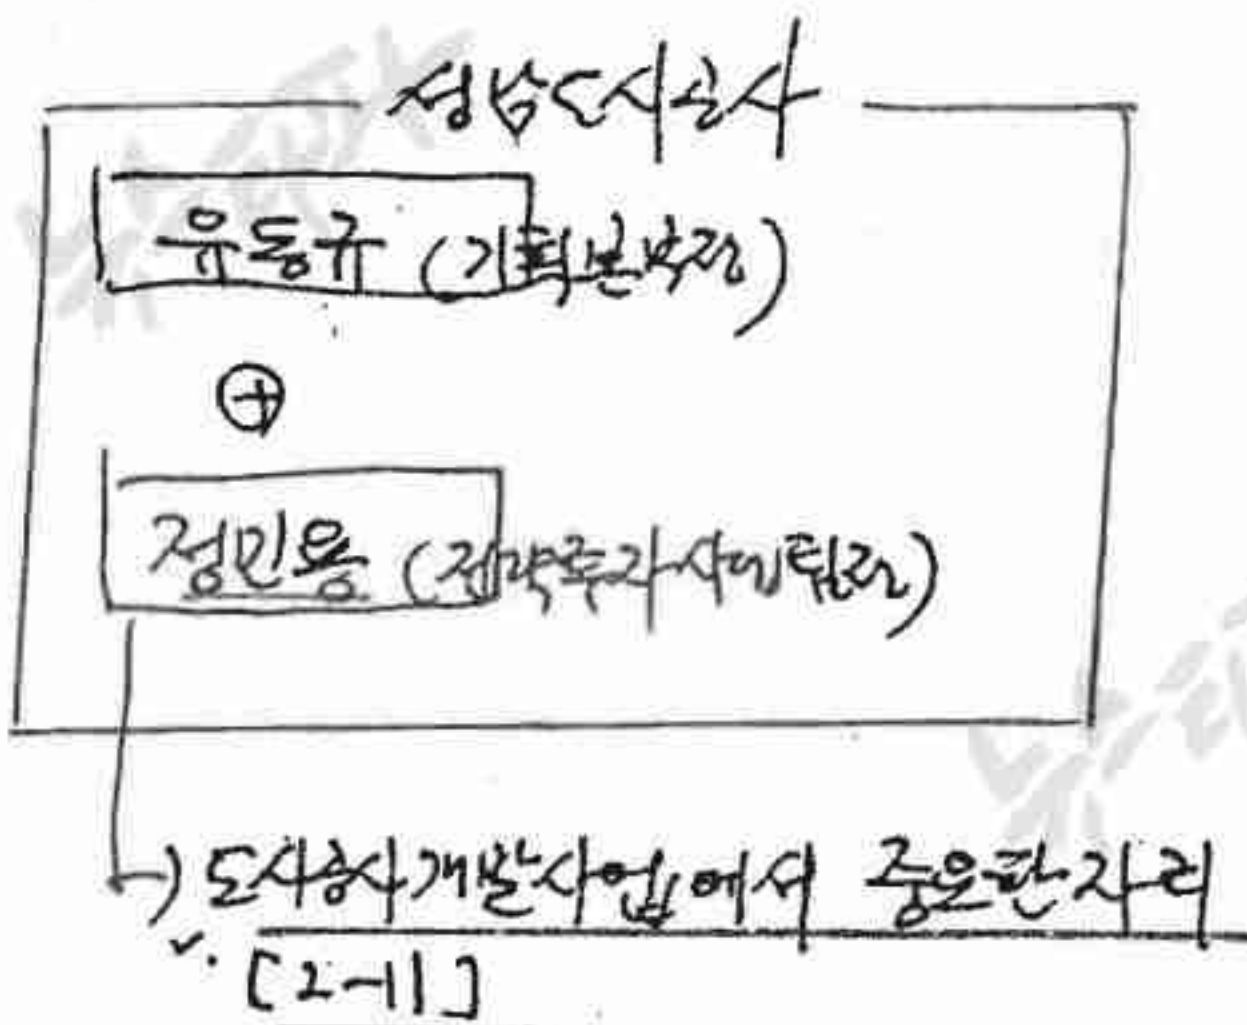 성남도시공사
유동규 (기획본부장)
⊕
정민용 (전략투자사업팀장)
→ 도시공사개발사업에서 중요한자리
✓. [2-11]